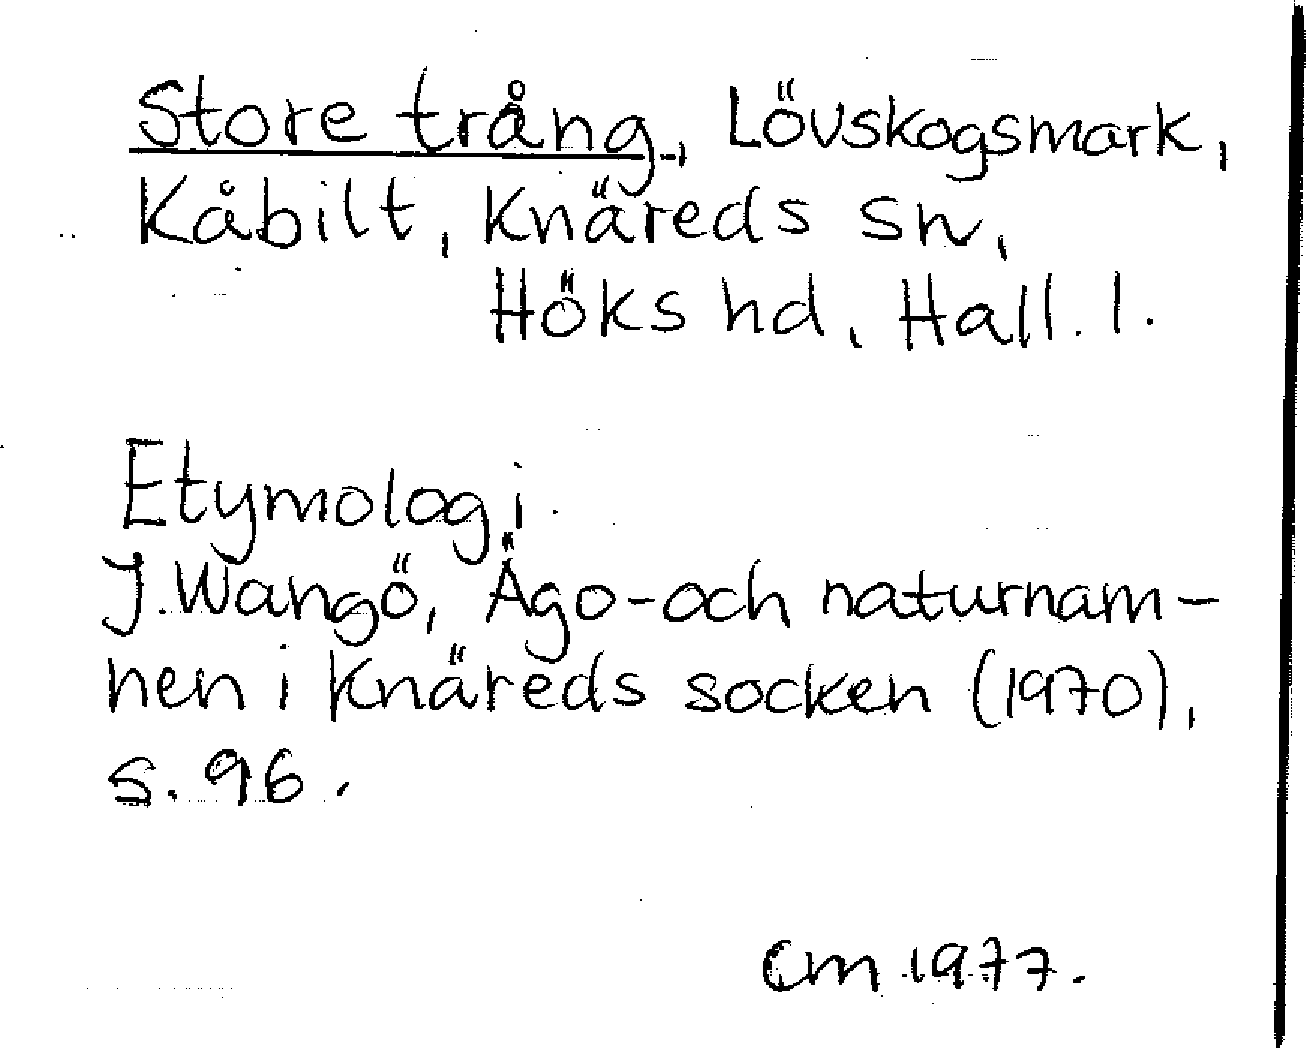 Store trång, Lövskogsmark,
Kåbilt, Knäreds sn,
Höks hd, Hall. l.
Etymologi
J. Wangö, Ägo- och naturnam-
nen i Knäreds socken (1970),
s. 96.
CM 1977.